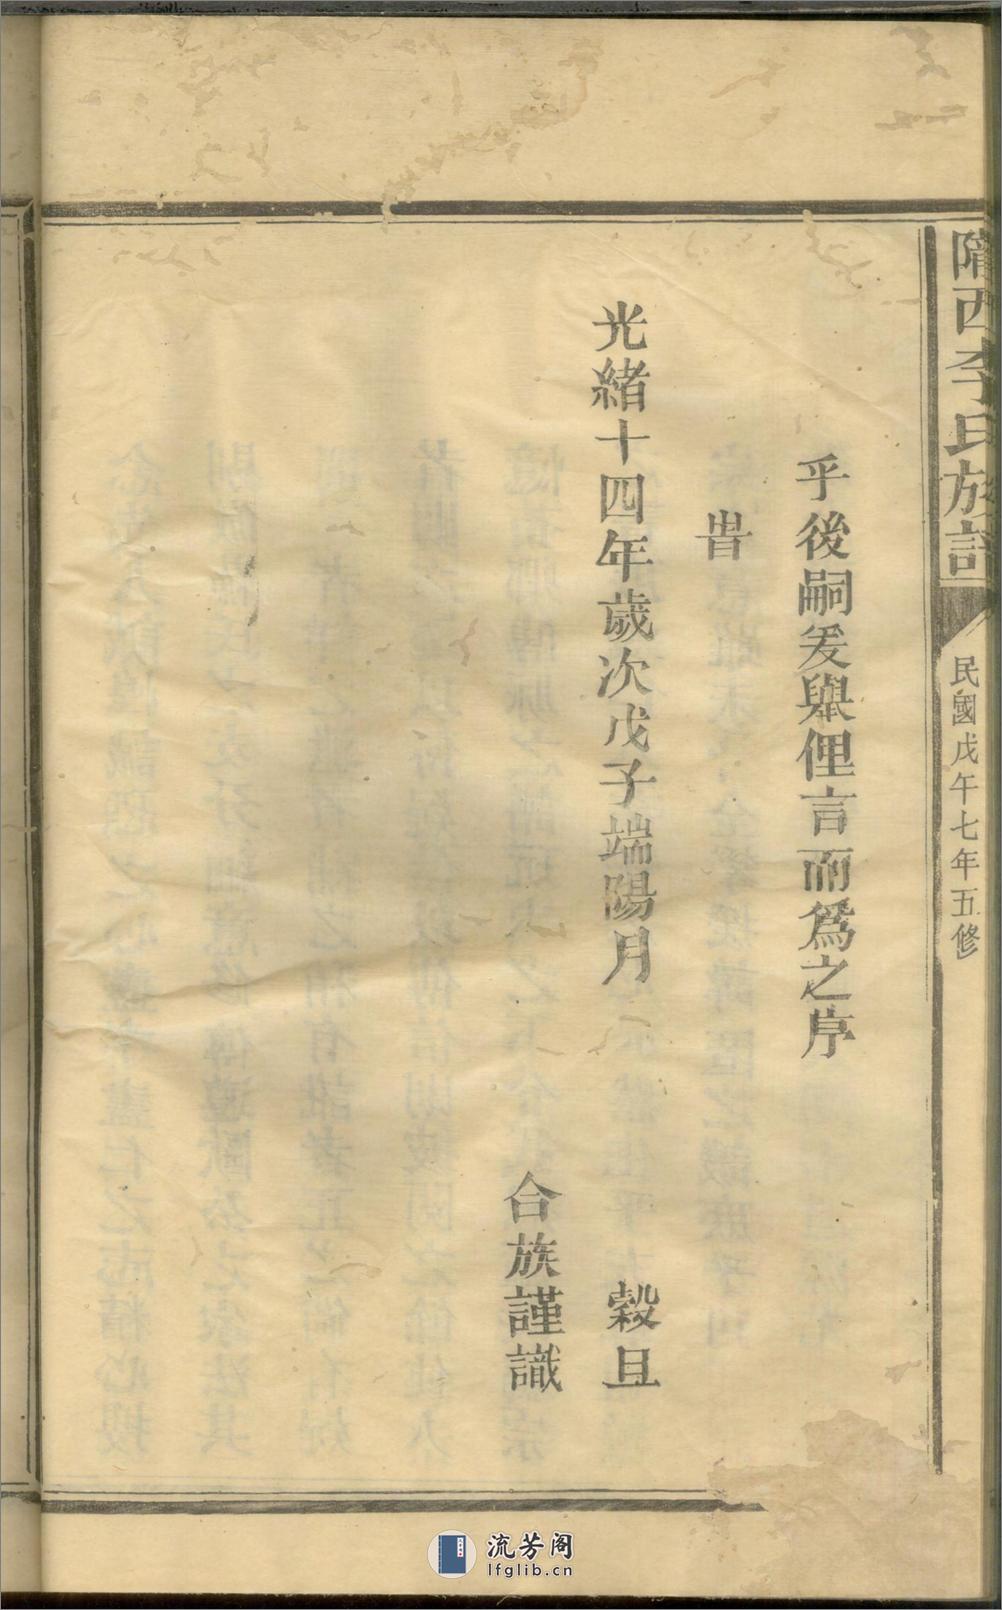 隋西李氏族譜
民國戊午七年五修
乎後嗣爰舉俚言而爲之序
旹
光緒十四年歲次戊子端陽月
穀旦
合族謹識
流芳阁
lfglib.cn